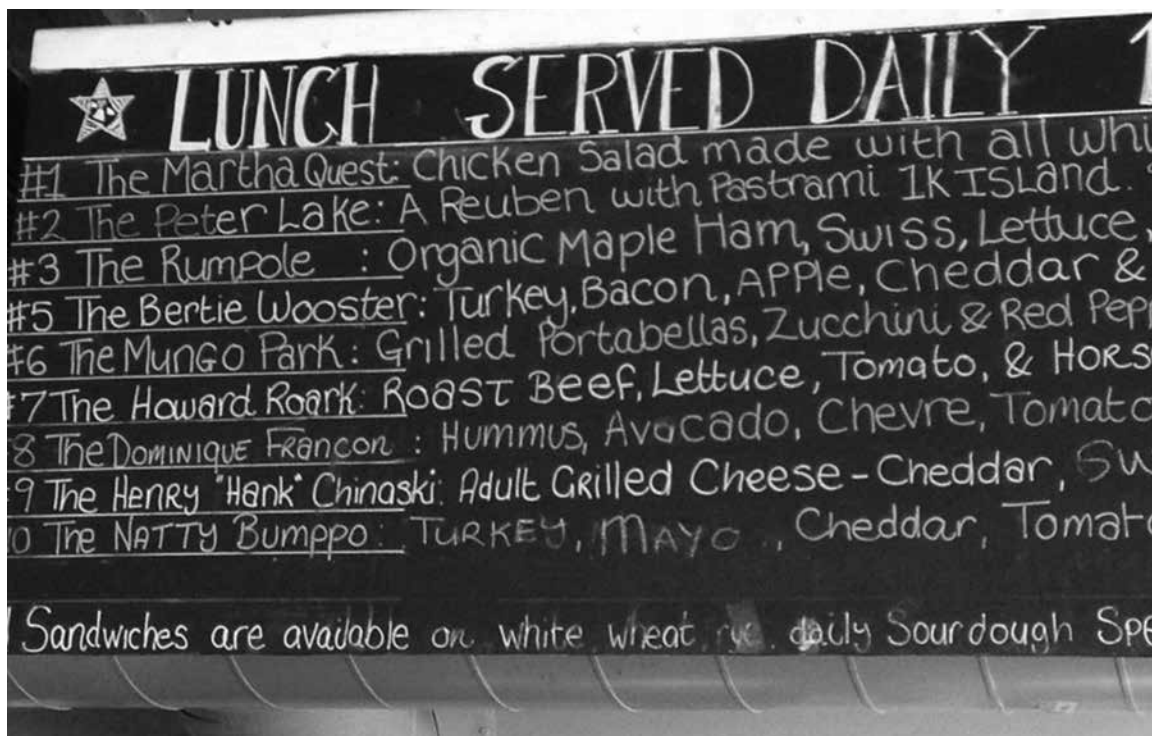 LUNCH SERVED DAILY
#1 The Martha Quest: Chicken Salad made with all whi
#2 The Peter Lake: A Reuben with Pastrami 1K ISLand.
#3 The Rumpole : Organic Maple Ham, Swiss, Lettuce,
#5 The Bertie Wooster: Turkey, Bacon, APPle, Cheddar &
#6 The Mungo Park: Grilled Portabellas, Zucchini & Red Pepp
#7 The Howard Roark: Roast Beef, Lettuce, Tomato, & HORS
8 The Dominique Francon : Hummus, Avocado, Chevre, Tomato
9 The Henry "Hank" Chinaski: Adult Grilled Cheese-Cheddar, Sw
0 The Natty Bumppo: Turkey, Mayo, Cheddar, Tomato
Sandwiches are available on white wheat rye daily Sourdough Spe